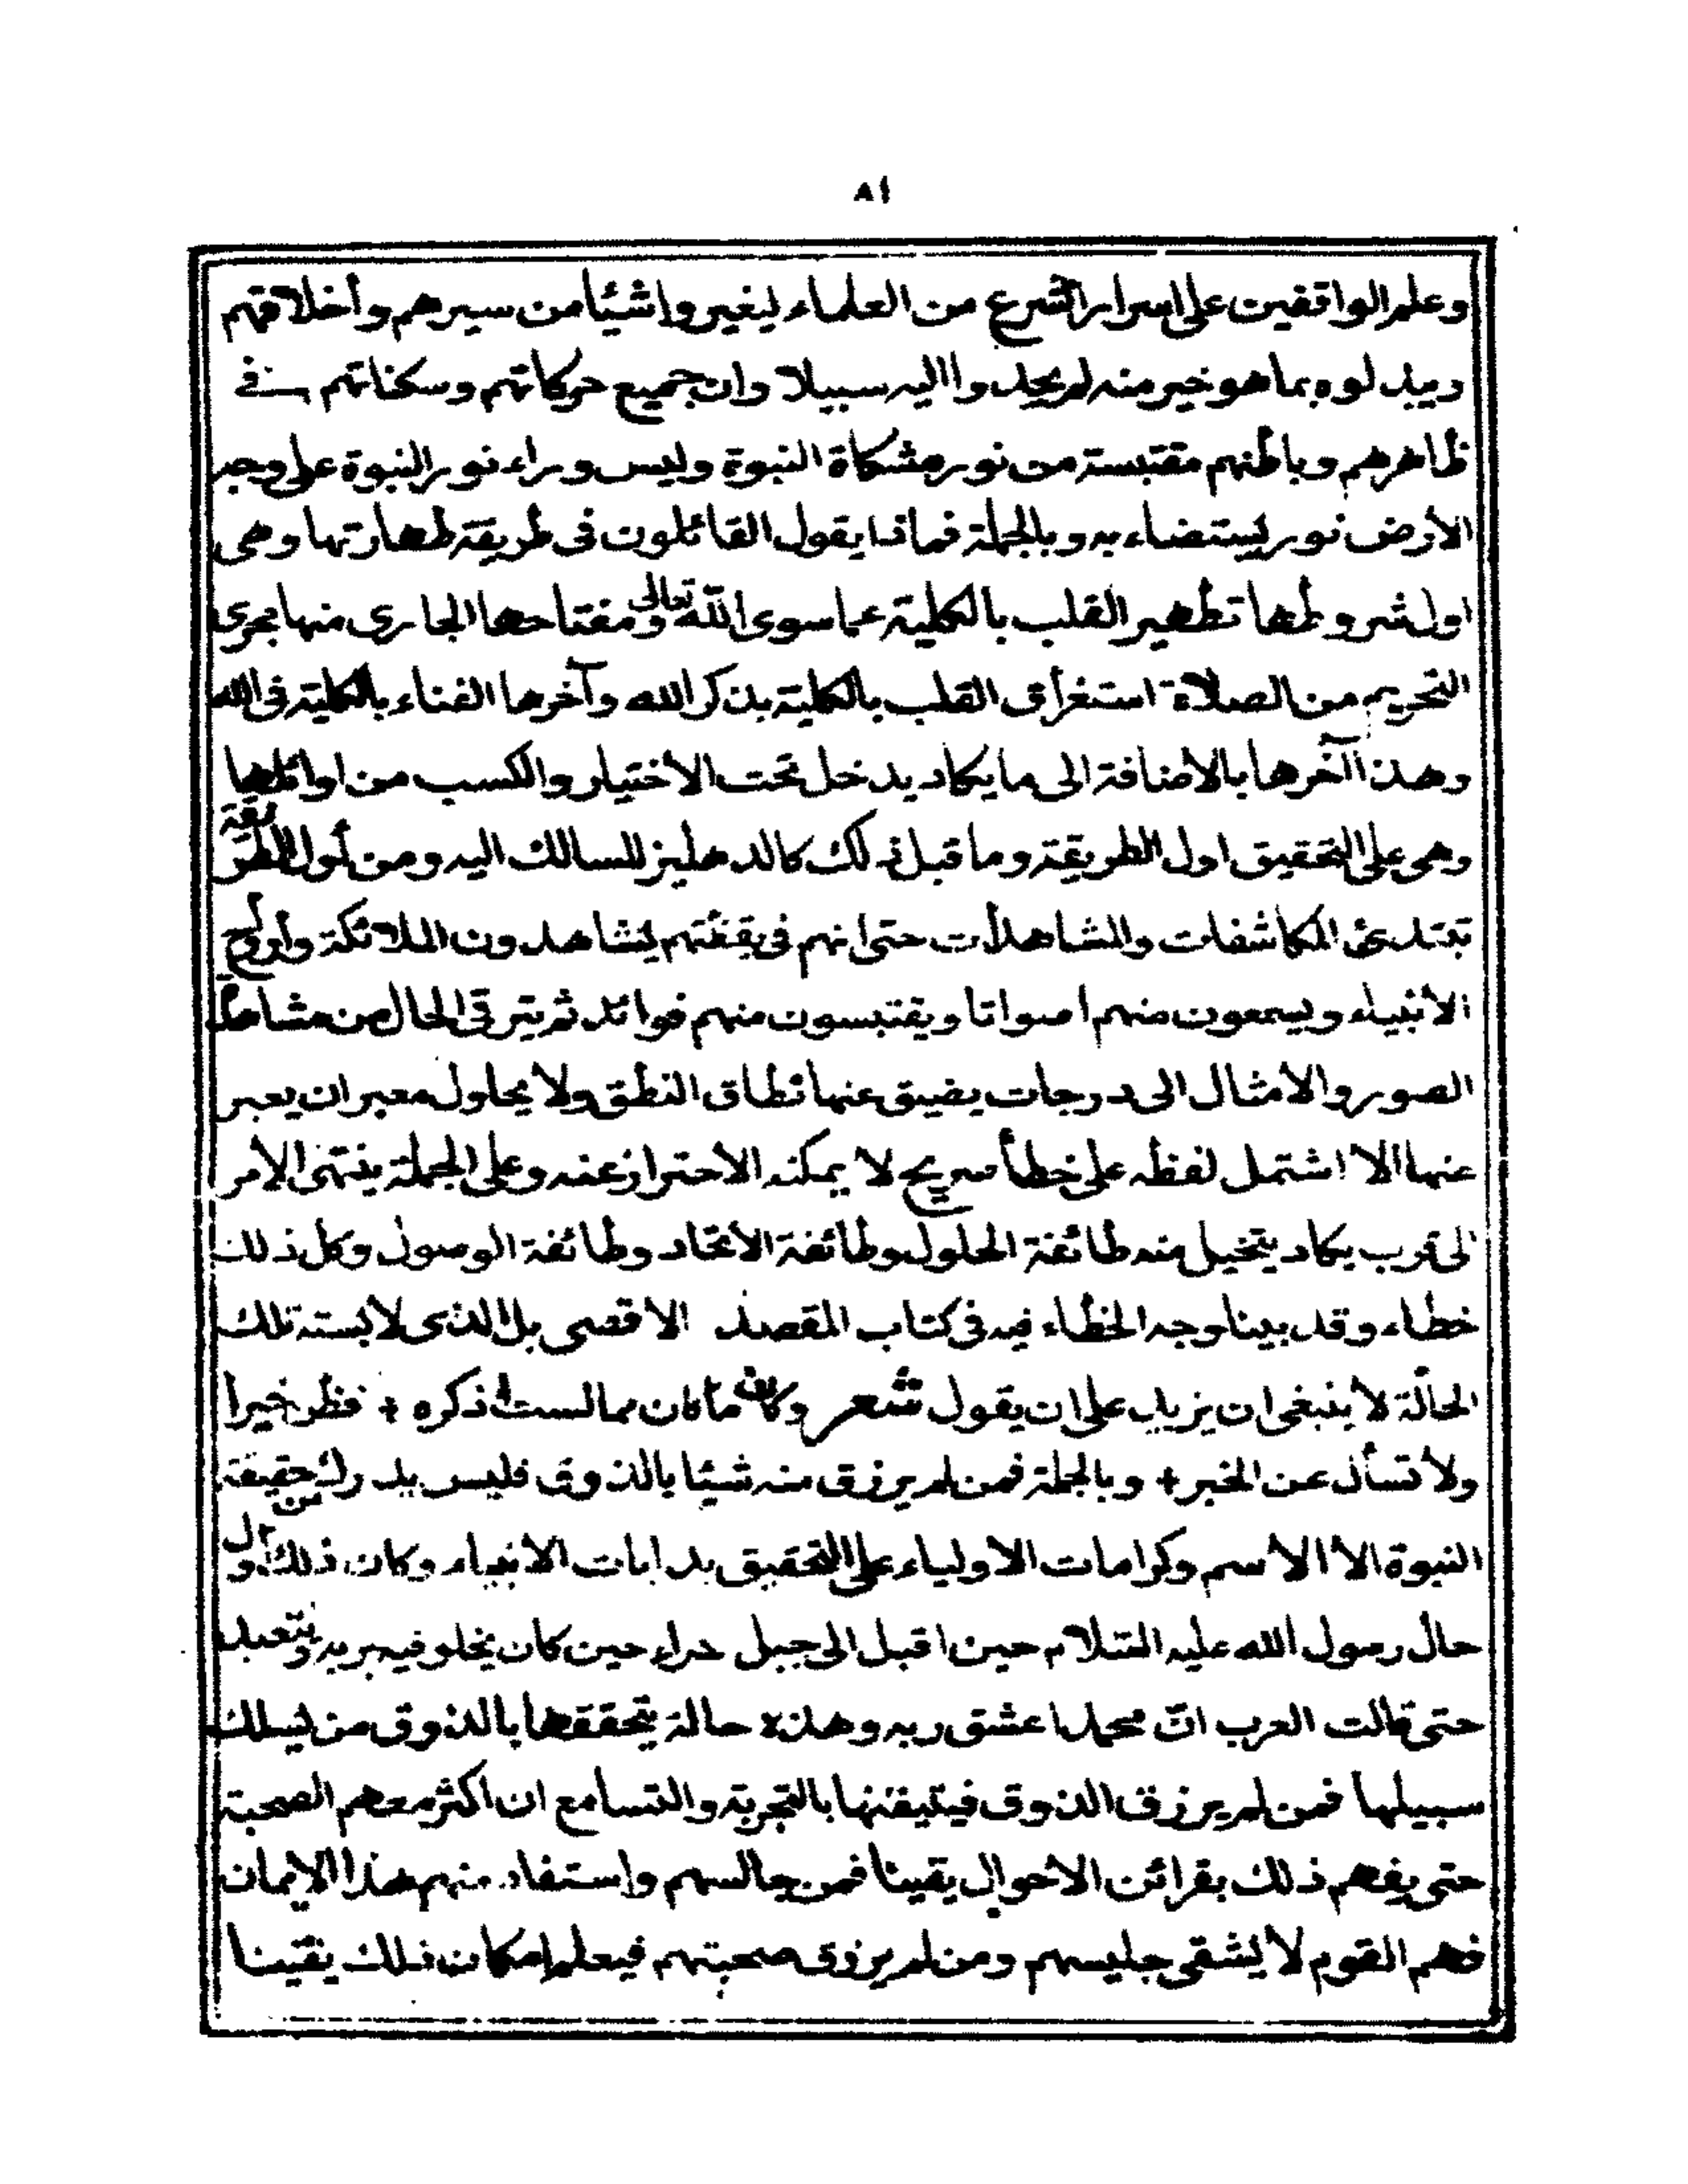 ٨١
وعلم الواقفين على اسرار الشرع من العلماء ليغيروا شيئا من سيرهم وأخلاقهم
ويبدلوه بما هو خير منه لم يجدوا اليه سبيلا وان جميع حركاتهم وسكناتهم في
ظاهرهم وباطنهم مقتبسة من نور مشكاة النبوة وليس وراء نور النبوة على وجه
الأرض نور يستضاء به وبالجملة فماذا يقول القائلون فى طريقة طهارتها وهى
اول شروطها تطهير القلب بالكلية عما سوى الله تعالى ومفتاحها الجارى منها مجرى
التحريم من الصلاة استغراق القلب بالكلية بذكر الله وآخرها الفناء بالكلية فى الله
وهذا آخرها بالاضافة الى ما يكاد يدخل تحت الاختيار والكسب من اوائلها
وهى على التحقيق اول الطريقة وما قبل ذلك كالدهليز للسالك اليه ومن أول الطريقة
تبتدئ المكاشفات والمشاهدات حتى انهم فى يقظتهم يشاهدون الملائكة وأرواح
الأنبياء ويسمعون منهم اصواتا ويقتبسون منهم فوائد ثم يترقى الحال من مشاهدة
الصور والامثال الى درجات يضيق عنها نطاق النطق ولا يحاول معبر ان يعبر
عنها الا اشتمل لفظه على خطأ صريح لا يمكنه الاحتراز عنه وعلى الجملة ينتهى الأمر
الى قرب يكاد يتخيل منه طائفة الحلول وطائفة الاتحاد وطائفة الوصول وكل ذلك
خطاء وقد بينا وجه الخطاء فيه فى كتاب المقصد الاقصى بل الذى لابسته تلك
الحالة لا ينبغى ان يزيد على ان يقول شعر وكان ما كان مما لست اذكره + فظن خيرا
ولا تسأل عن الخبر + وبالجملة فمن لم يرزق منه شيئا بالذوق فليس يدرك من حقيقة
النبوة الا الاسم وكرامات الاولياء على التحقيق بدايات الانبياء وكان ذلك اول
حال رسول الله عليه السلام حين اقبل الى جبل حراء حين كان يخلو فيه بربه ويتعبد
حتى قالت العرب انّ محمدا عشق ربه وهذه حالة يتحققها بالذوق من يسلك
سبيلها فمن لم يرزق الذوق فيتيقنها بالتجربة والتسامع ان اكثر معهم الصحبة
حتى يفهم ذلك بقرائن الاحوال يقينا فمن جالسهم واستفاد منهم هذا الايمان
فهم القوم لا يشقى جليسهم ومن لم يرزق صحبتهم فيعلم امكان ذلك يقينا